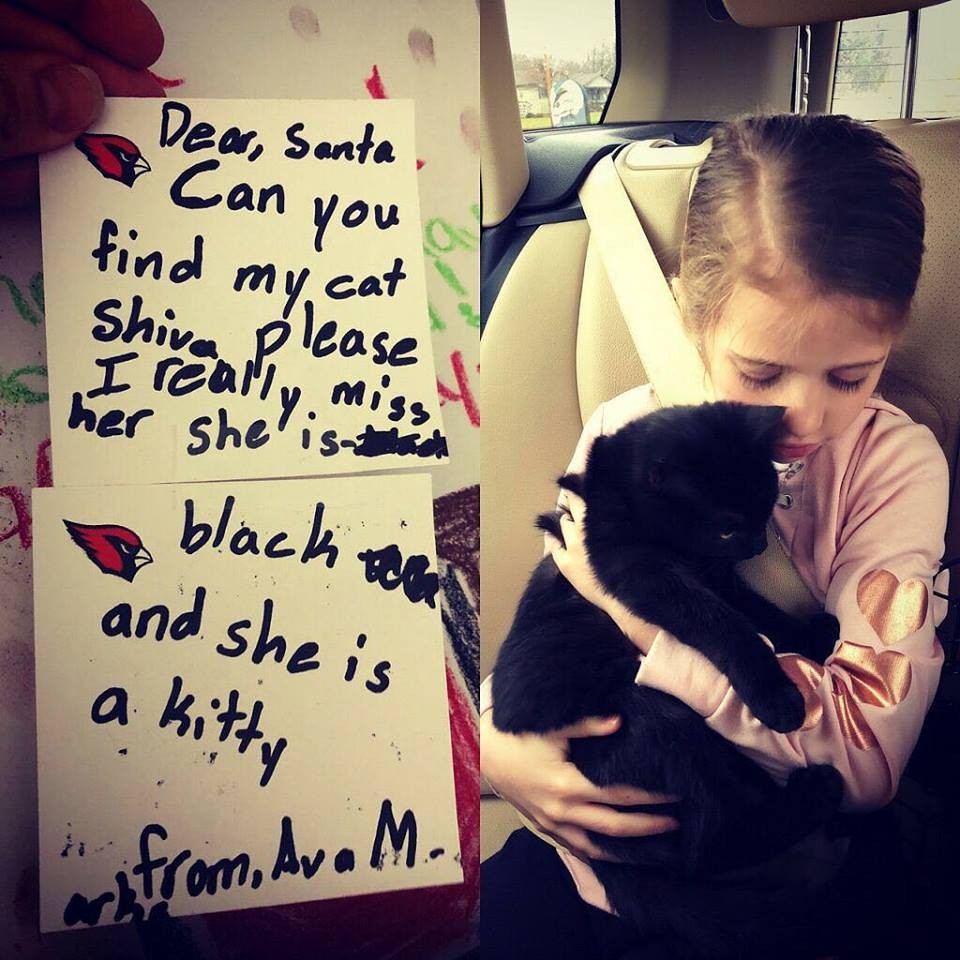 Dear, Santa
Can you
find my cat
Shiva please
I really miss
her she is
black
and she is
a kitty
from, Ava M-